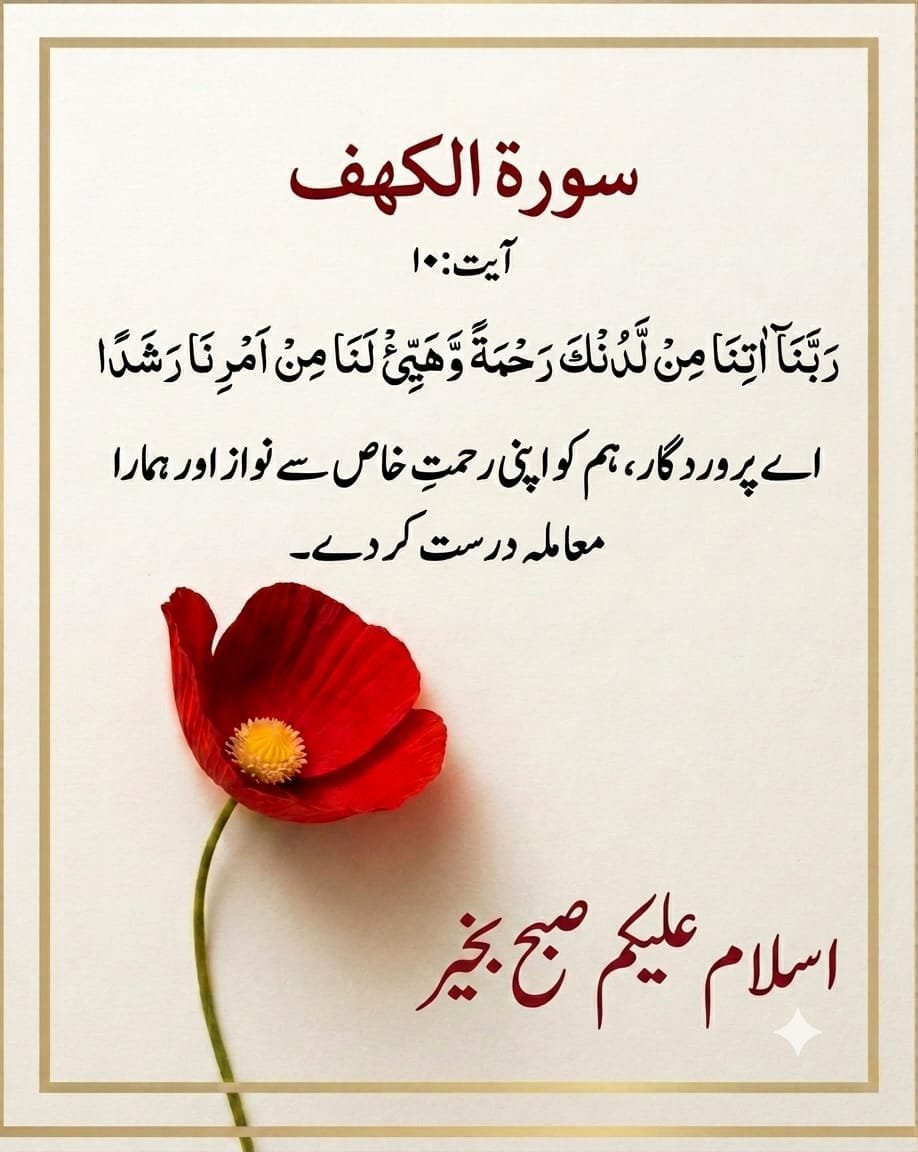 سورة الكهف
آیت:۱۰
رَبَّنَآ اٰتِنَا مِنْ لَّدُنْكَ رَحْمَةً وَّهَيِّئْ لَنَا مِنْ اَمْرِنَا رَشَدًا
اے پروردگار، ہم کو اپنی رحمتِ خاص سے نواز اور ہمارا
معاملہ درست کر دے۔
اسلام علیکم صبح بخیر